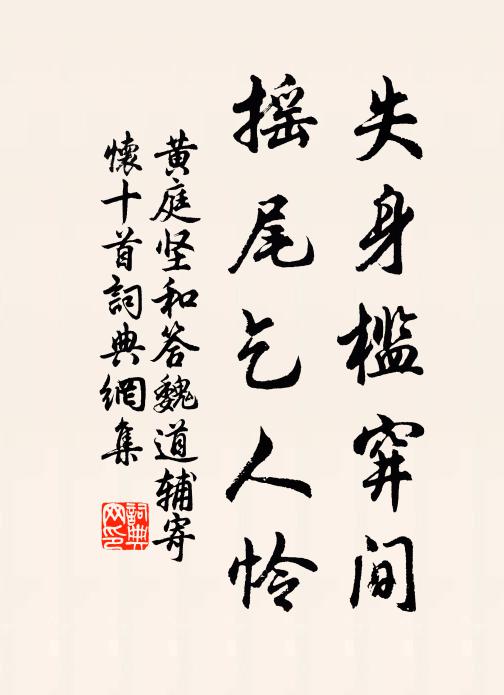 失身槛穽间
摇尾乞人怜
黄庭坚和答魏道辅寄
懷十首詞典網集
詞典
网印